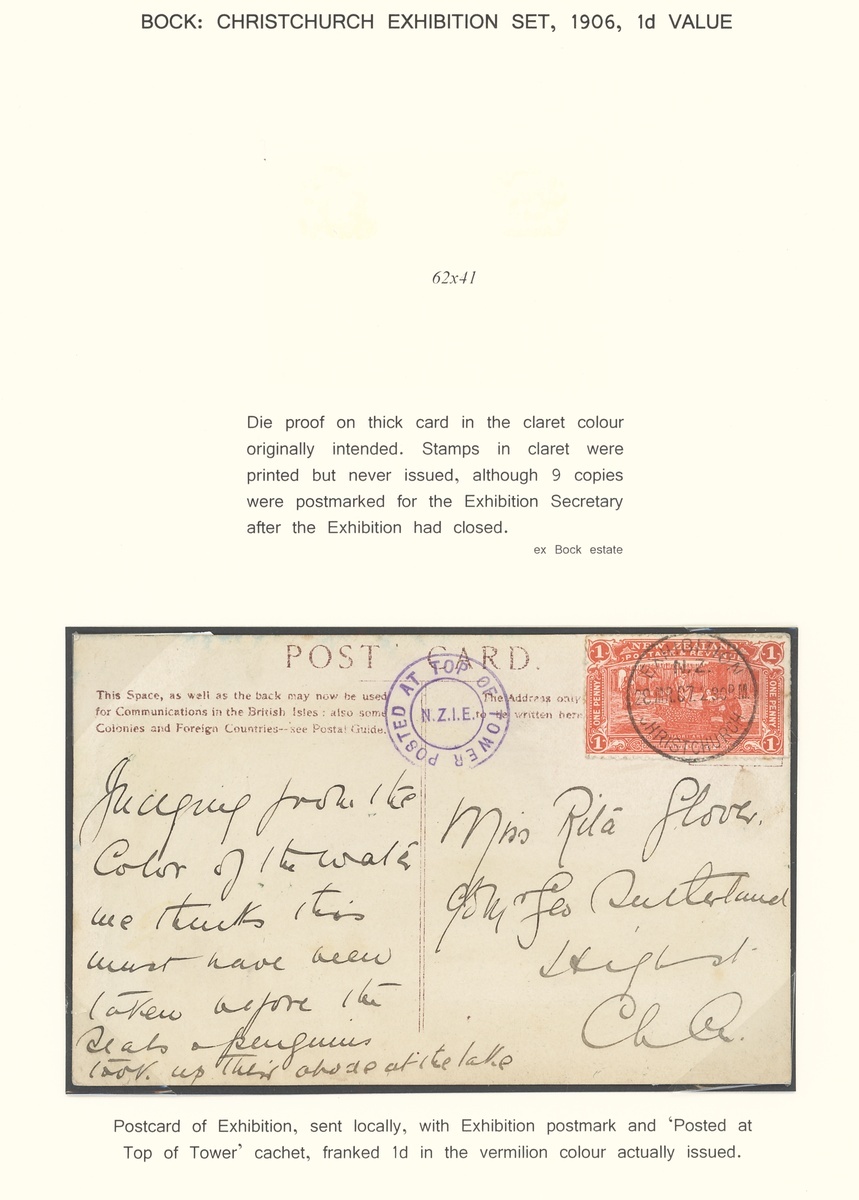 BOCK: CHRISTCHURCH EXHIBITION SET, 1906, 1d VALUE
62x41
Die proof on thick card in the claret colour
originally intended. Stamps in claret were
printed but never issued, although 9 copies
were postmarked for the Exhibition Secretary
after the Exhibition had closed.
ex Bock estate
POST CARD.
This Space, as well as the back may now be used
for Communications in the British Isles : also some
Colonies and Foreign Countries—see Postal Guide.
POSTED AT TOP OF TOWER
N.Z.I.E.
The Address only
to be written here.
NEW ZEALAND
POSTAGE & REVENUE
1 1
ONE PENNY ONE PENNY
1 1
N.Z.
CHRISTCHURCH
Judging from the
Color of the water
me thinks this
must have been
taken before the
Seals & penguins
took up their abode at the lake
Miss Rita Glover.
c/o Mr Geo Sutherland
High st
Ch Ch.
Postcard of Exhibition, sent locally, with Exhibition postmark and ‘Posted at
Top of Tower’ cachet, franked 1d in the vermilion colour actually issued.